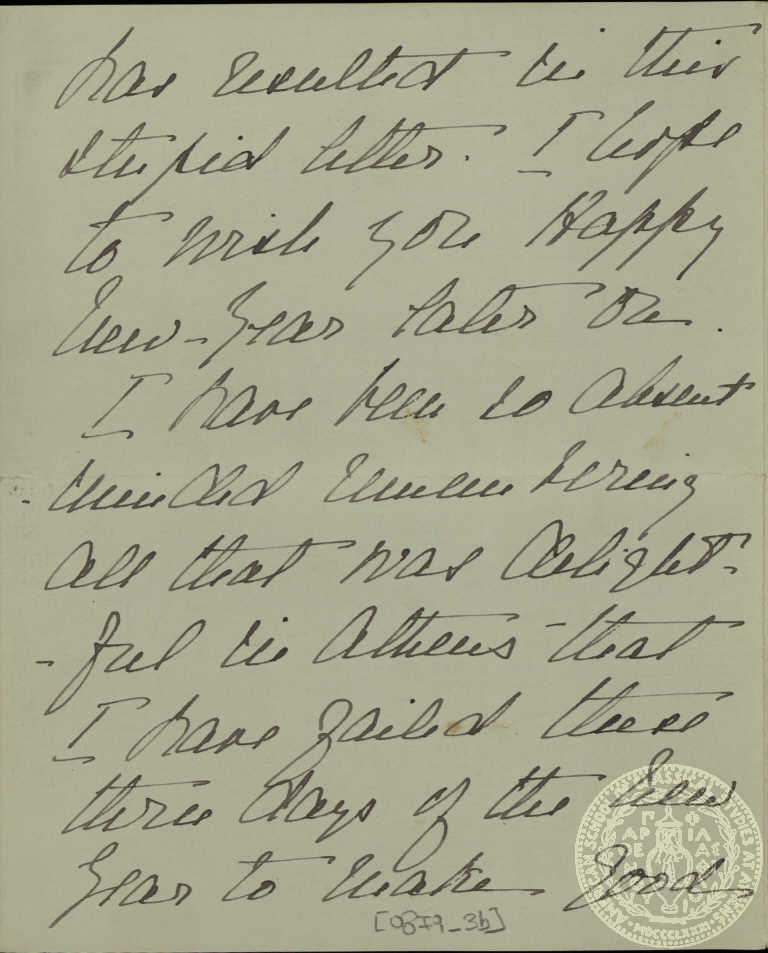 has resulted in this
stupid letter. I hope
to wish you Happy
New-Year later on.
I have been so absent
-minded remembering
all that was delight-
-ful in Athens - that
I have failed these
three days of the New
Year to make good
[0879_3b]